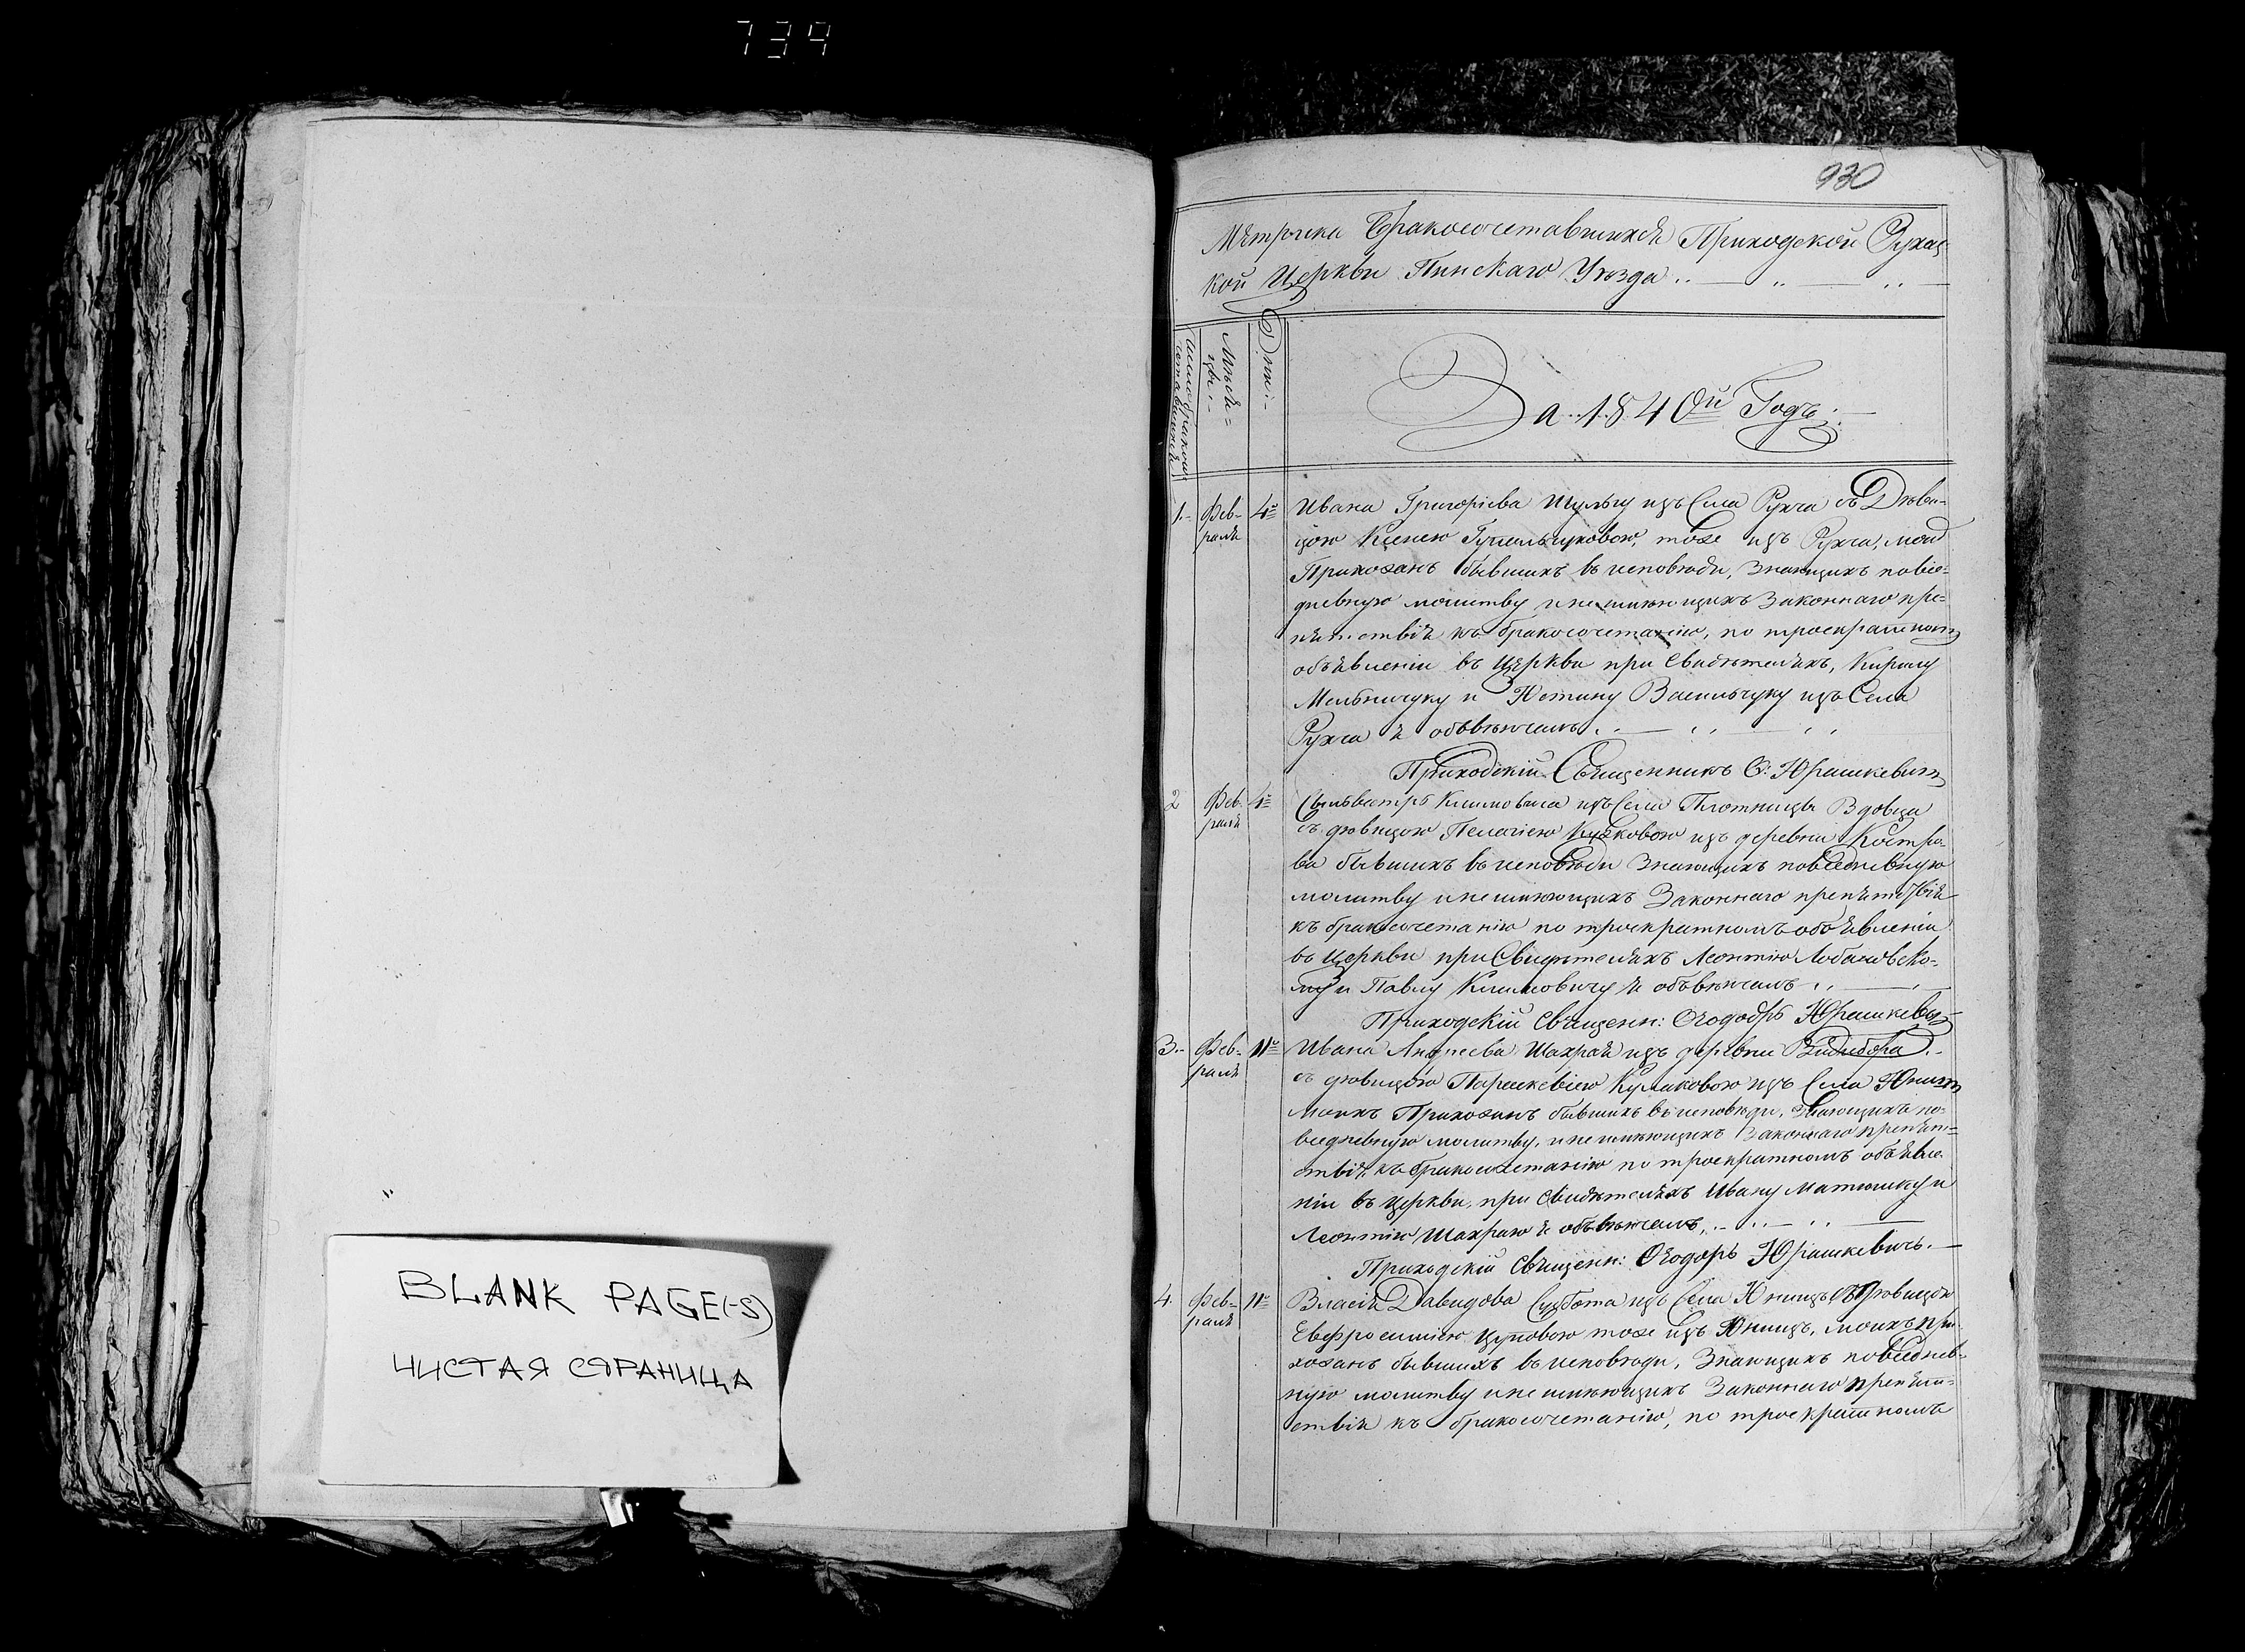 739
930
Метрика Бракосочетавшихся Приходской Рухчс
кой Церкви Пинскаго Уѣзда
Число бракосо
четавшихся
Мѣся=
цы:-
Дни:-
За 1840й Годъ:
1. Фев- 4е Ивана Григоріева Шульгу изъ Села Рухча съ Дѣви-
раля цою Ксенею тоже изъ Рухча, моих
Прихожанъ бывшихъ въ исповѣди, Знающихъ повсе-
дневную молитву и неимѣющихъ Законнаго пре-
пятствія къ бракосочетанію, по троекратном
объявленіи въ Церкви при Свидѣтеляхъ, Кирилу
Мельничуку и Юстину Васильчуку изъ Села
Рухча я обвѣнчалъ
Приходскій Священникъ Ѳ: Юрашкевич
2 Фев- 4е Сильвестръ Климовича изъ Села Плотницы Вдовца
раля съ дѣвицою Пелагіею изъ деревни Костро-
ва бывшихъ въ исповѣди Знающихъ повседневную
молитву и неимѣющихъ Законнаго препятствія
къ бракосочетанію по троекратномъ объявленіи
въ Церкви при Свидѣтеляхъ Леонтію Лобановско-
му и Павлу Климовичу я обвѣнчалъ
Приходскій Священн: Ѳеодоръ Юрашкевич
3. Фев- 11е Ивана Андреева Шахрая изъ деревни Видибора
раля съ дѣвицою Параскевіею Кулаковою изъ Села Юнищ
моихъ Прихожанъ бывшихъ въ исповѣди, Знающихъ по-
вседневную молитву, и неимѣющихъ Законнаго препят=
ствія къ бракосочетанію по троекратномъ объявле
ніи въ Церкви, при Свидѣтеляхъ Ивану Матюшку и
Леонтію Шахраю я обвѣнчалъ
Приходскій Священн: Ѳеодоръ Юрашкевичъ.
4. Фев- 11е Власія Давидова Суббота изъ Села Юнищъ съ дѣвицою
раля Евфросиніею Цуповою тоже изъ Юнищъ, моихъ при-
хожанъ бывшихъ въ исповѣди, Знающихъ повседнев-
ную молитву и неимѣющихъ Законнаго препят-
ствія къ бракосочетанію, по троекратномъ
BLANK PAGE(-S)
ЧИСТАЯ СТРАНИЦА